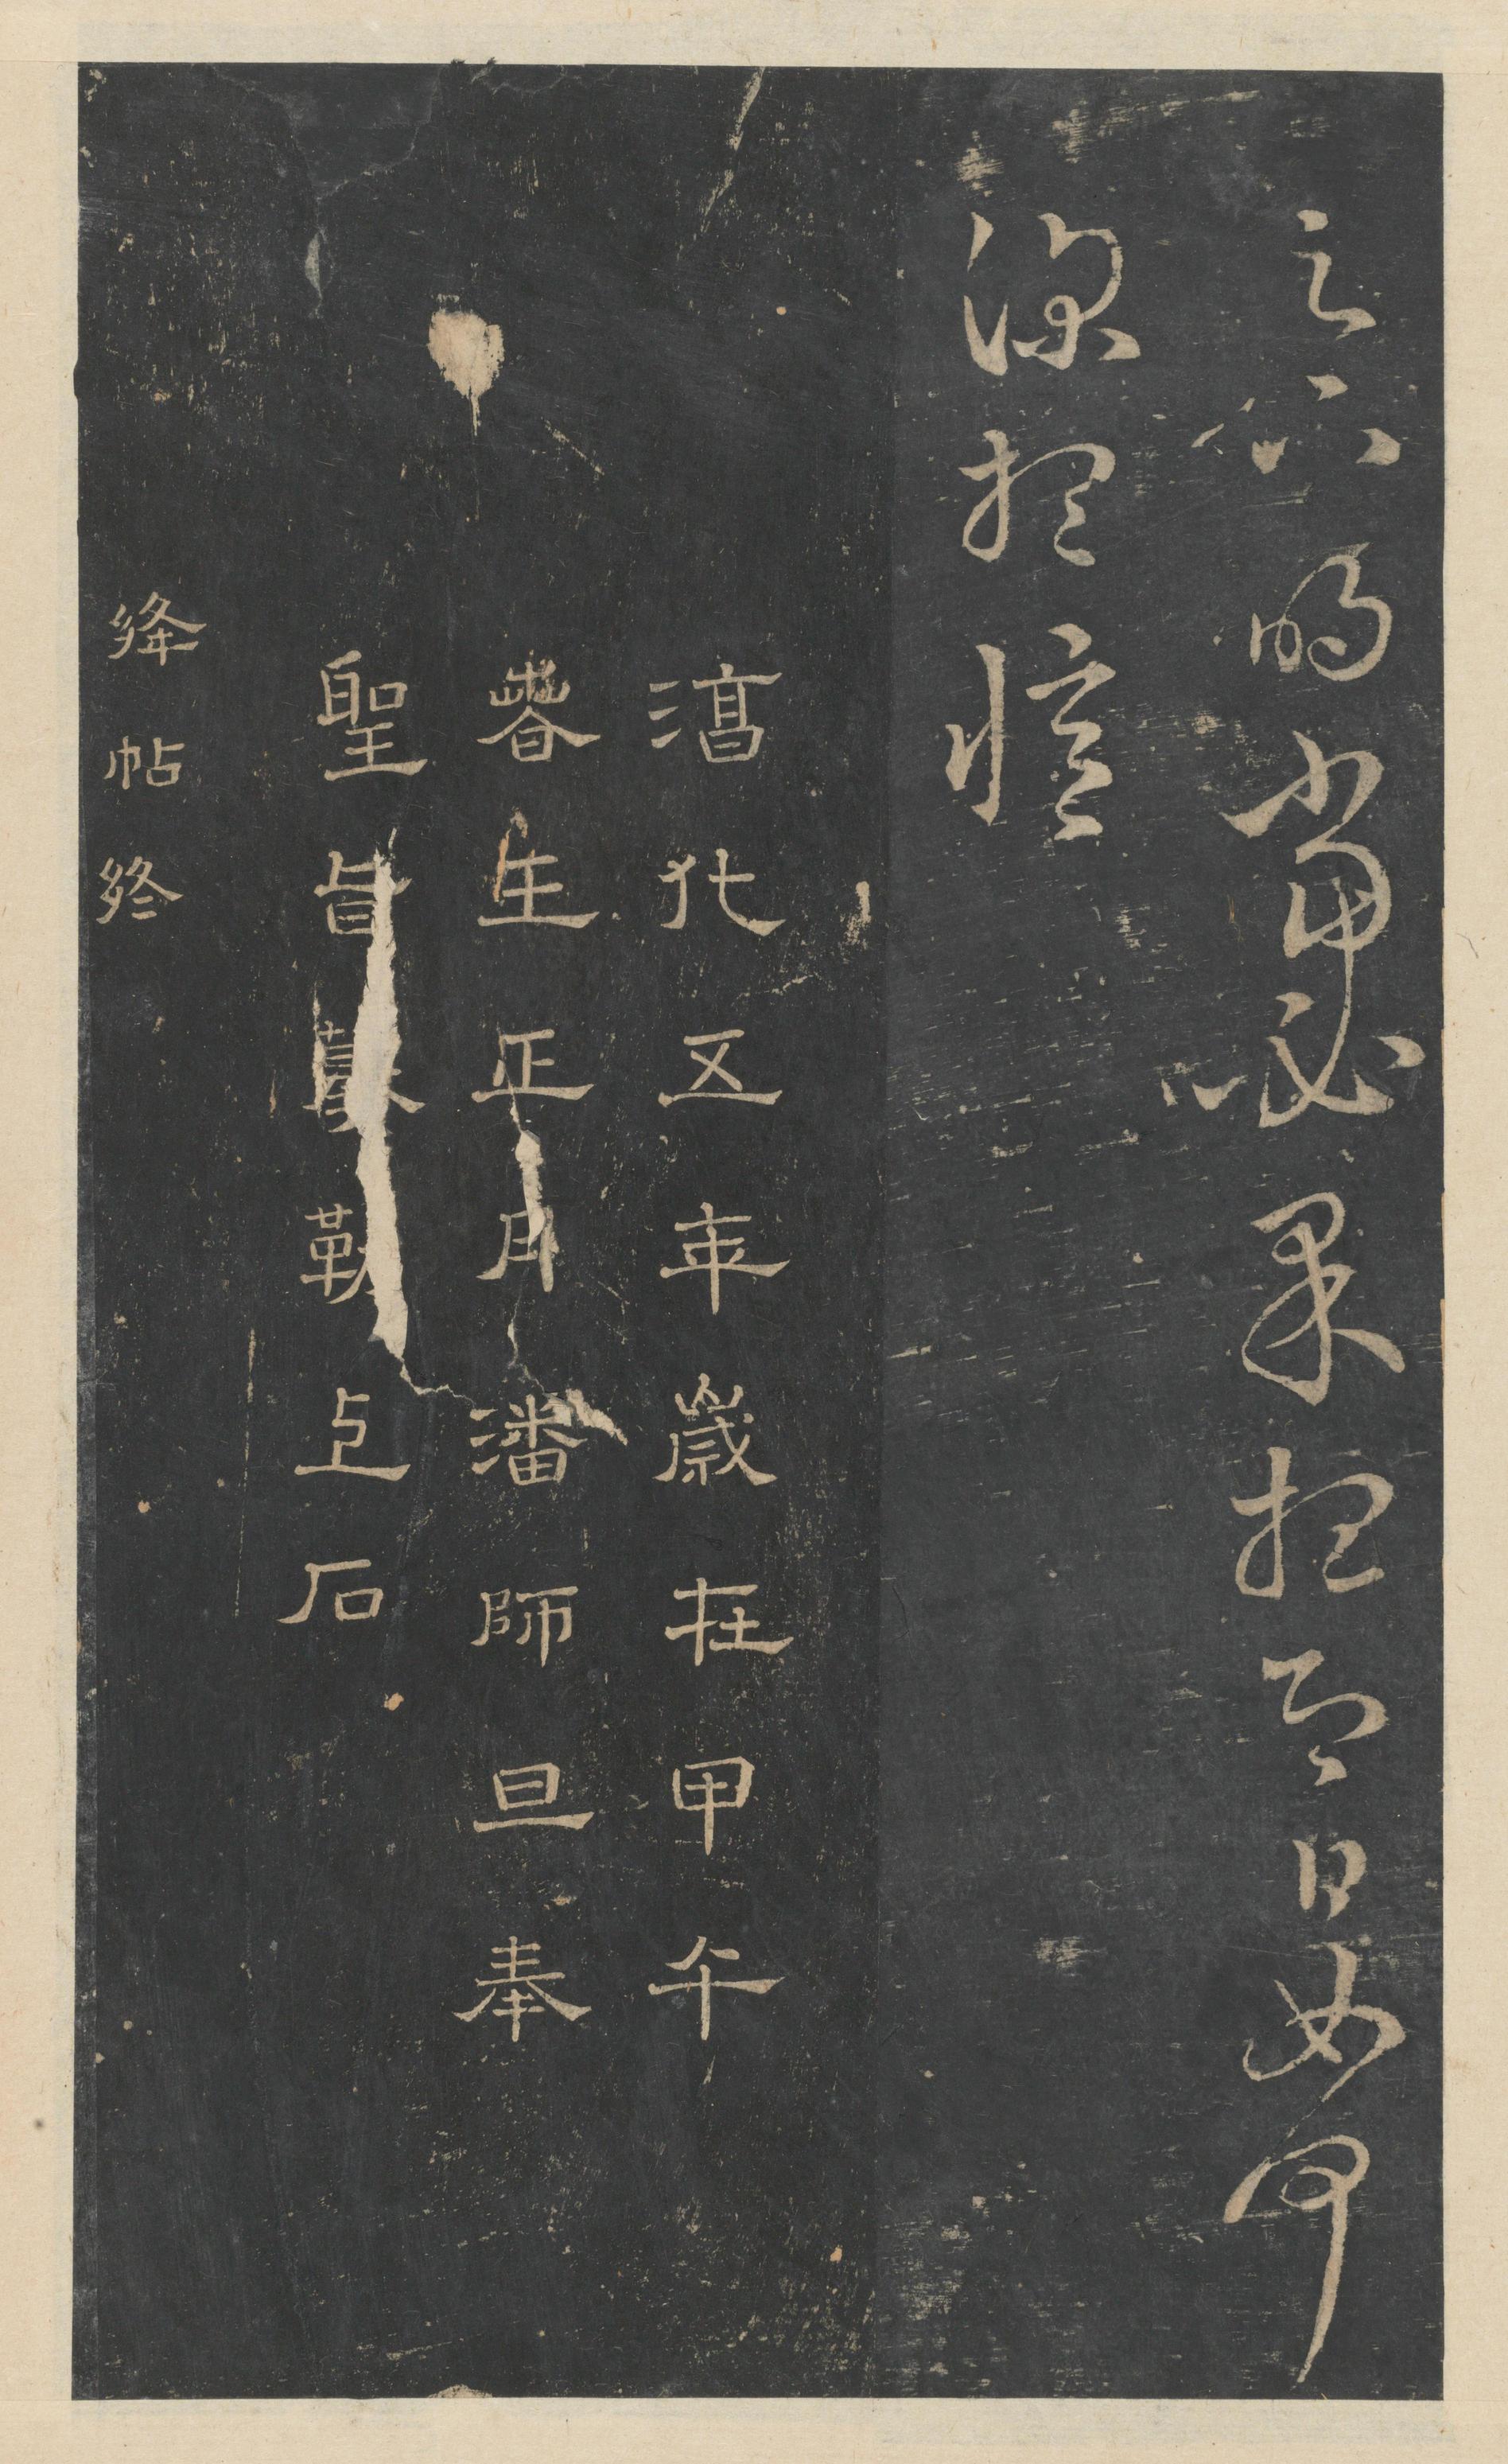 明當必果想即日如何
深想憶
淳化五年歲在甲午
春王正月潘師旦奉
聖旨摹勒上石
絳帖終